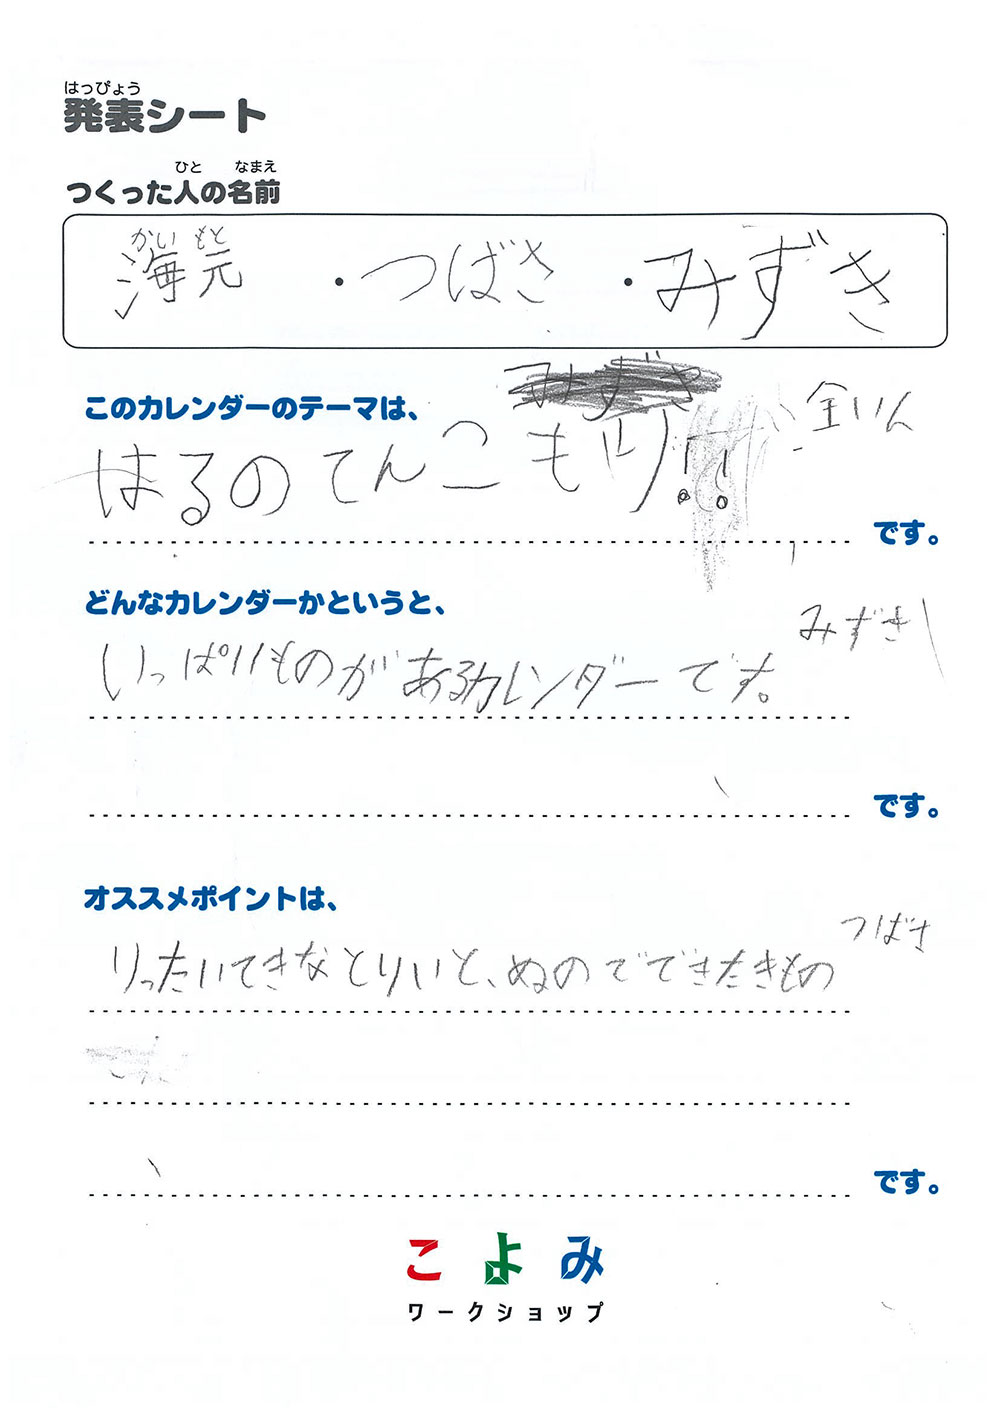 はっぴょう
発表シート
ひと なまえ
つくった人の名前
かい もと
海元 ・ つばさ ・ みずき
みずき
このカレンダーのテーマは、
全いん
はるのてんこもり!!
です。
どんなカレンダーかというと、
みずき
いっぱいものがあるカレンダーです。
です。
オススメポイントは、
つばさ
りったいてきなとりいと、ぬのでできたきもの
です。
こよみ
ワークショップ